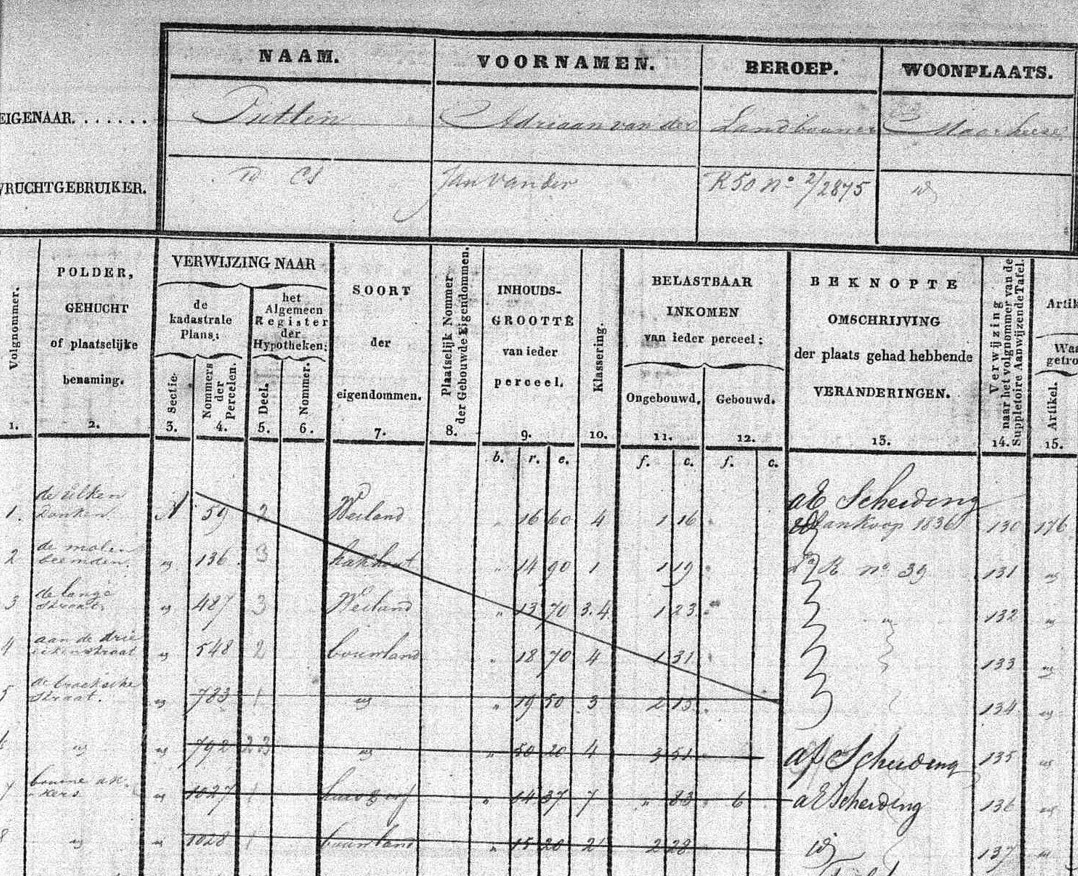 NAAM. VOORNAMEN. BEROEP. WOONPLAATS.
EIGENAAR. . . . . . . Putlin Adriaan van der Landbouwer Maarheese
VRUCHTGEBRUIKER. Jan van der R 50 no 2/2875 id
VERWIJZING NAAR
Volgnommer.
POLDER,
GEHUCHT
of plaatselijke
benaming.
de
kadastrale
Plans;
Sectie.
Nommers
der
Perceelen.
het
Algemeen
Register
der
Hypotheken;
Deel.
Nummer.
SOORT
der
eigendommen.
Plaatselijk Nommer
der Gebouwde Eigendommen.
INHOUDS-
GROOTTE
van ieder
perceel.
Klassering.
BELASTBAAR
INKOMEN
van ieder perceel:
Ongebouwd. Gebouwd.
BEKNOPTE
OMSCHRIJVING
der plaats gehad hebbende
VERANDERINGEN.
Verwijzing
naar het volgnommer van de
Suppletoire Aanwijzende Tafel.
Artikel.
1. 2. 3. 4. 5. 6. 7. 8. 9. 10. 11. 12. 13. 14. 15.
b. r. e. f. c. f. c.
Scheiding
1. A 59 2 Weiland " 16 60 4 1 16 aankoop 1836 130 176
2 de molen
beemden. " 136 3 hakhout " 14 90 1 1 19 no 39 131 "
3 de lange
straat. " 487 3 Weiland " 13 70 3.4 1 23 " 132 "
4 aan de drie
eikenstraat " 548 2 bouwland " 18 70 4 1 31 133 "
5 de broeksche
straat. " 783 1 " " 19 50 3 2 15 134 "
6 " " 792 23 " " 50 20 4 3 51 af Scheiding 135 "
7 " 1027 1 " 14 37 7 " 83 6 Scheiding 136 "
8 " " 1028 1 bouwland " 15 20 2 2 28 id 137 "